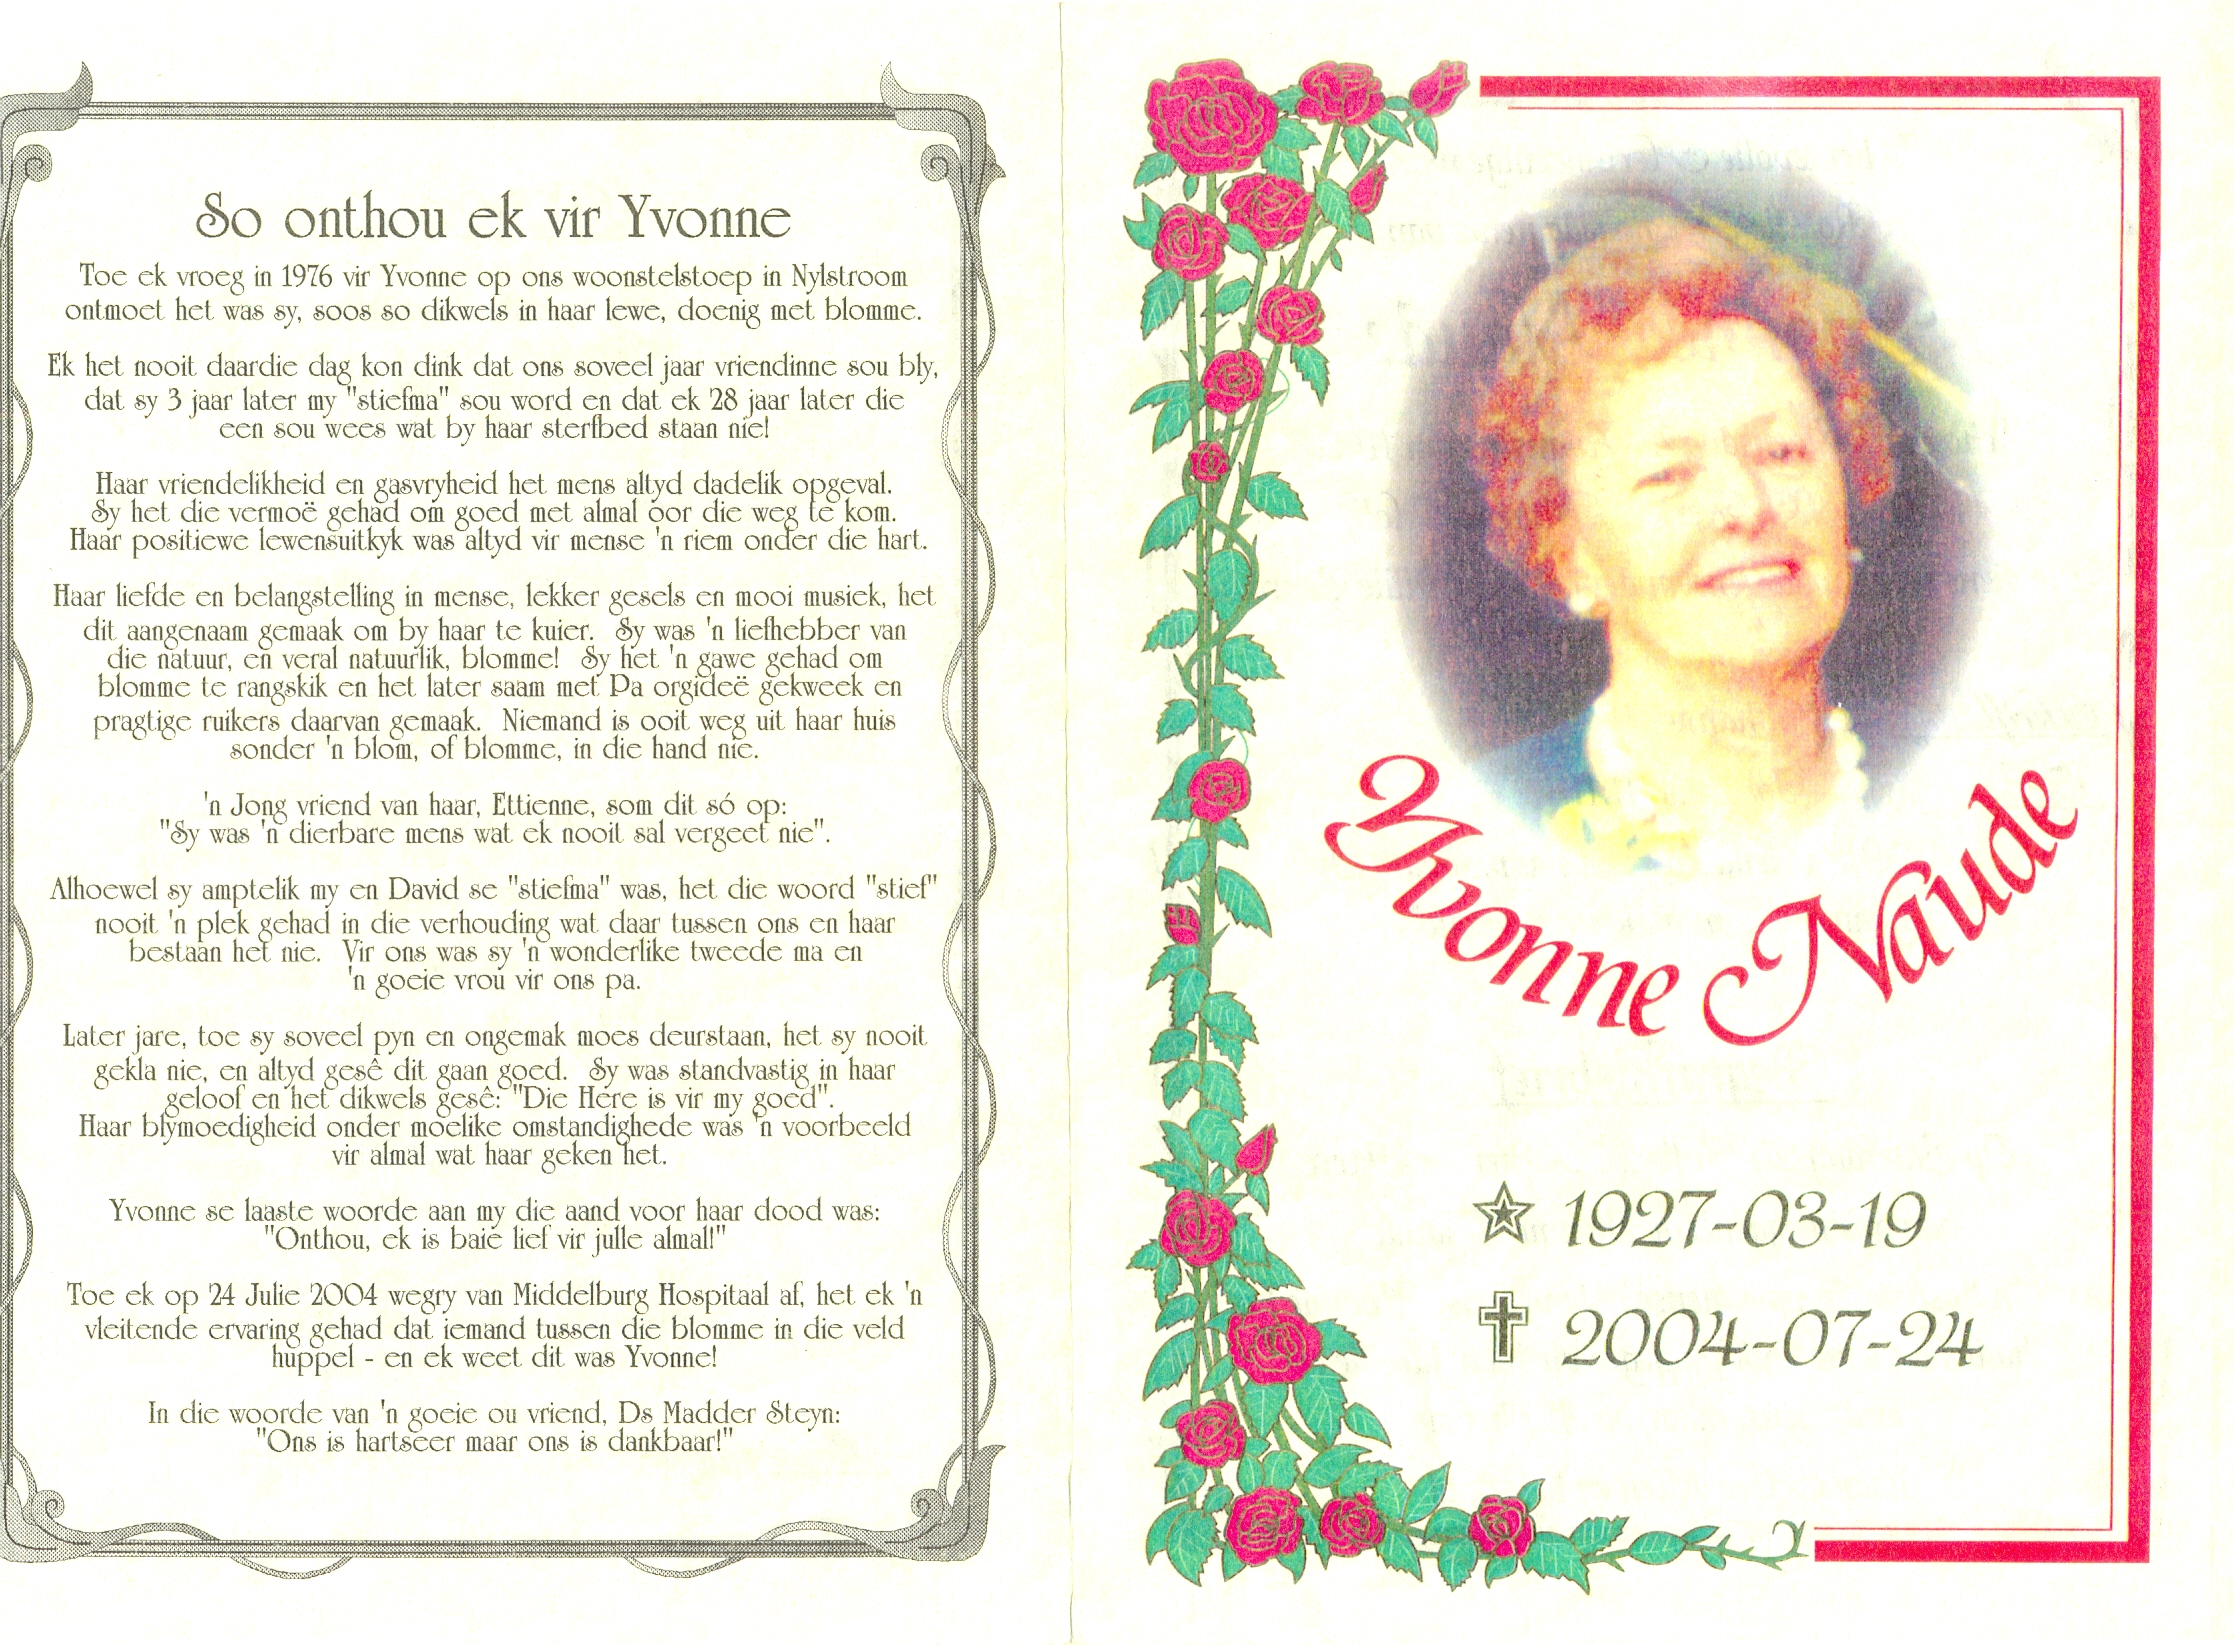 So onthou ek vir Yvonne
Toe ek vroeg in 1976 vir Yvonne op ons woonstelstoep in Nylstroom
ontmoet het was sy, soos so dikwels in haar lewe, doenig met blomme.
Ek het nooit daardie dag kon dink dat ons soveel jaar vriendinne sou bly,
dat sy 3 jaar later my "stiefma" sou word en dat ek 28 jaar later die
een sou wees wat by haar sterfbed staan nie!
Haar vriendelikheid en gasvryheid het mens altyd dadelik opgeval.
Sy het die vermoë gehad om goed met almal oor die weg te kom.
Haar positiewe lewensuitkyk was altyd vir mense 'n riem onder die hart.
Haar liefde en belangstelling in mense, lekker gesels en mooi musiek, het
dit aangenaam gemaak om by haar te kuier. Sy was 'n liefhebber van
die natuur, en veral natuurlik, blomme! Sy het 'n gawe gehad om
blomme te rangskik en het later saam met Pa orgideë gekweek en
pragtige ruikers daarvan gemaak. Niemand is ooit weg uit haar huis
sonder 'n blom, of blomme, in die hand nie.
'n Jong vriend van haar, Ettienne, som dit só op:
"Sy was 'n dierbare mens wat ek nooit sal vergeet nie".
Alhoewel sy amptelik my en David se "stiefma" was, het die woord "stief"
nooit 'n plek gehad in die verhouding wat daar tussen ons en haar
bestaan het nie. Vir ons was sy 'n wonderlike tweede ma en
'n goeie vrou vir ons pa.
Later jare, toe sy soveel pyn en ongemak moes deurstaan, het sy nooit
gekla nie, en altyd gesê dit gaan goed. Sy was standvastig in haar
geloof en het dikwels gesê: "Die Here is vir my goed".
Haar blymoedigheid onder moelike omstandighede was 'n voorbeeld
vir almal wat haar geken het.
Yvonne se laaste woorde aan my die aand voor haar dood was:
"Onthou, ek is baie lief vir julle almal!"
Toe ek op 24 Julie 2004 wegry van Middelburg Hospitaal af, het ek 'n
vleitende ervaring gehad dat iemand tussen die blomme in die veld
huppel - en ek weet dit was Yvonne!
In die woorde van 'n goeie ou vriend, Ds Madder Steyn:
"Ons is hartseer maar ons is dankbaar!"
Yvonne Naude
1927-03-19
2004-07-24